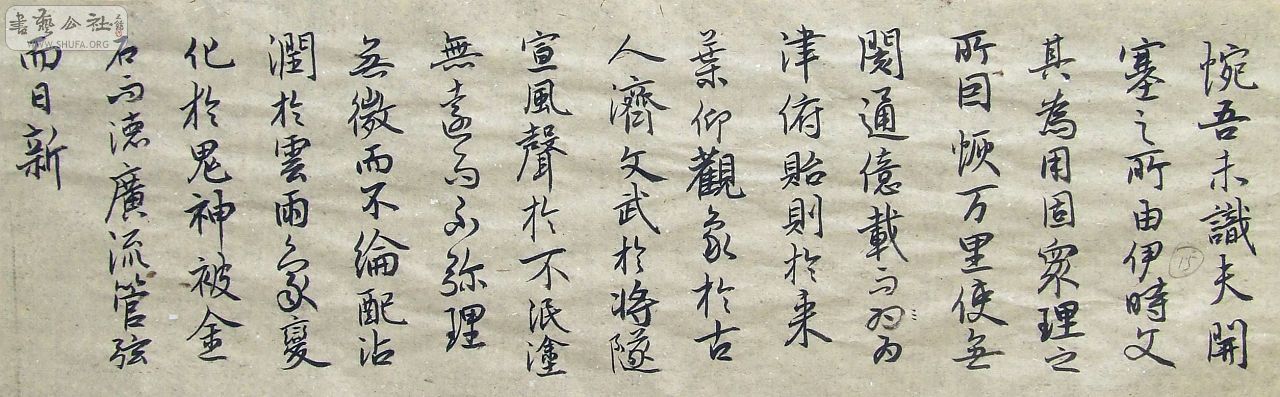 惋吾未識夫開
塞之所由伊時文
其為用固衆理之
所因恢万里使無
閡通億載而為
津俯貽則於来
葉仰觀象於古
人濟文武於將隧
宣風聲於不泯塗
無遠而不弥理
無微而不綸配沾
潤於雲雨象變
化於鬼神被金
石而德廣流管弦
而日新
15
書藝公社
WWW.SHUFA.ORG